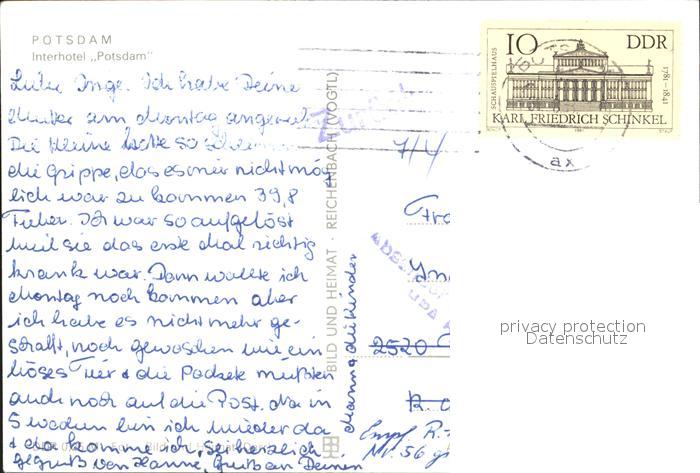 POTSDAM
Interhotel „Potsdam"
Liebe Inge. Ich habe Deine
Mutter am Montag angeruf
Die Kleine hatte so
die Grippe, das es mir nicht mög
lich war zu kommen 39,8
Fieber. Ich war so aufgelöst
weil sie das erste Mal richtig
krank war. Dann wollte ich
Montag noch kommen aber
ich habe es nicht mehr ge-
schafft, noch gewaschen wie ein
böses Tier + die Packete mußten
auch noch auf die Post. Na in
5 Wochen bin ich wieder da
+ da komme ich. Sei herzlich
gegrüßt von Hanne, Gruß an Deinen
Mann + die Kinder
BILD UND HEIMAT · REICHENBACH (VOGTL)
Zurück
7/4
Fra
In
2520
R.
Empf R.-
Nr. 56
10 DDR
SCHAUSPIELHAUS
1781-1841
KARL FRIEDRICH SCHINKEL
ax
privacy protection
Datenschutz